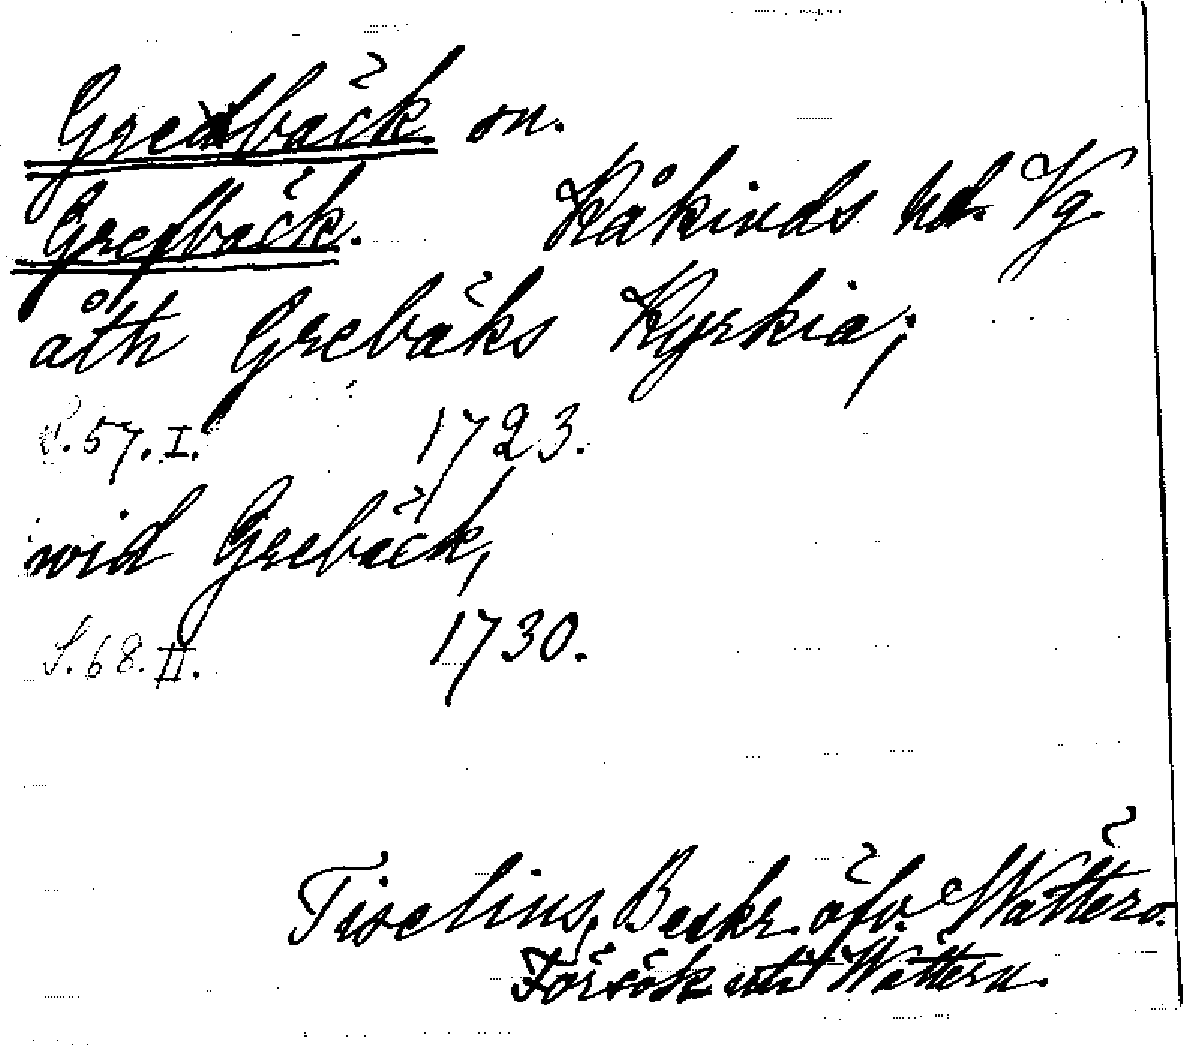 Gredbäck sn.
Grefbäck. Kåkinds hd. Vg.
åth Grebäks Kyrkia;
S. 57. I. 1723.
wid Grebäck,
S. 68. II. 1730.
Tiselius, Beskr. öfv. Wätter o.
Försök uti Wättern.